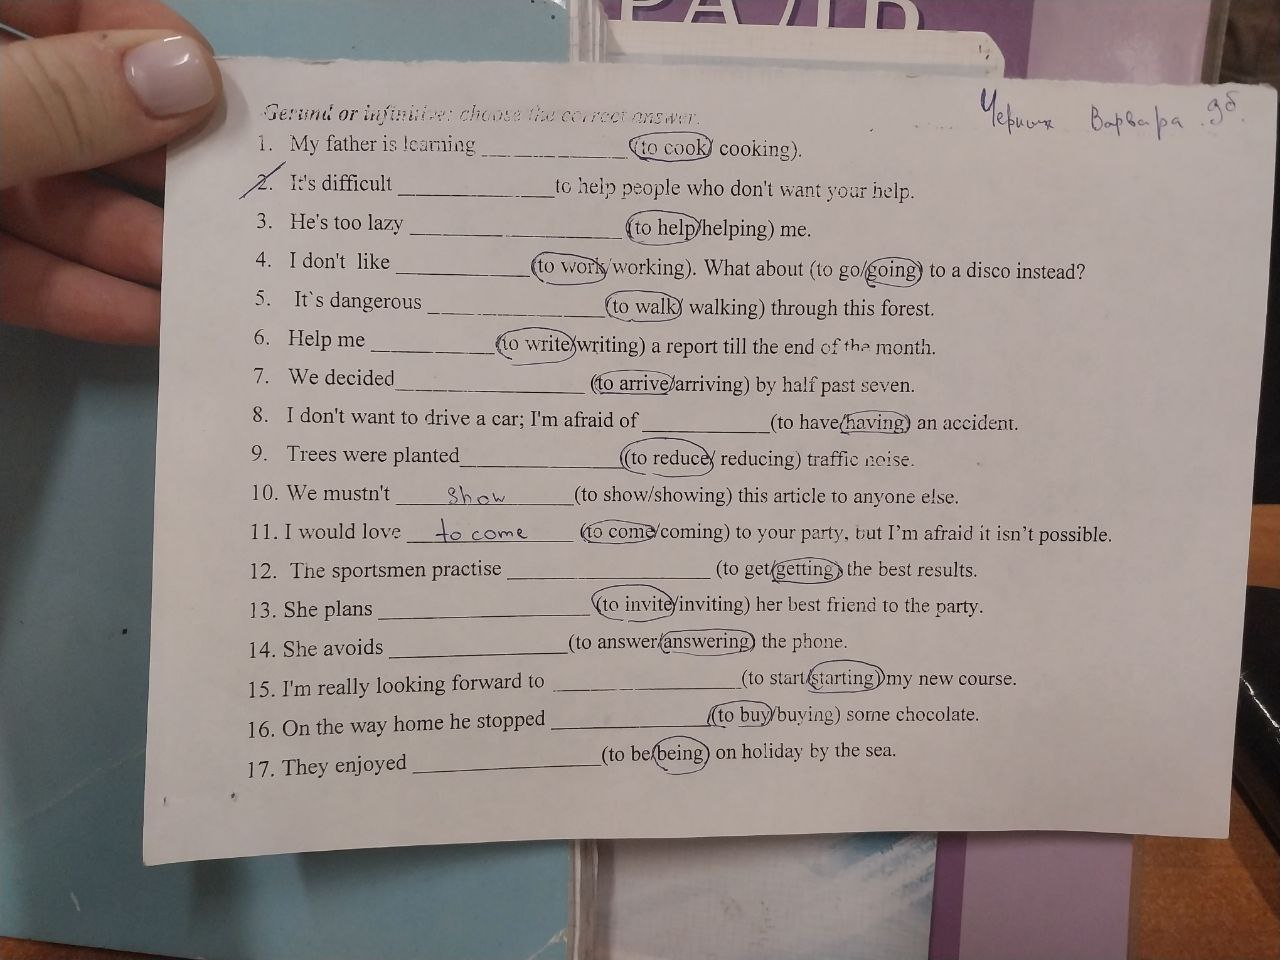 РАЛЬ
Gerund or infinitive: choose the correct answer.
Варвара 9б.
1. My father is learning ____________ (to cook/ cooking).
2. It's difficult ____________ to help people who don't want your help.
3. He's too lazy ____________ (to help/helping) me.
4. I don't like ____________ (to work/working). What about (to go/going) to a disco instead?
5. It`s dangerous ____________ (to walk/ walking) through this forest.
6. Help me ____________ (to write/writing) a report till the end of the month.
7. We decided____________ (to arrive/arriving) by half past seven.
8. I don't want to drive a car; I'm afraid of ____________ (to have/having) an accident.
9. Trees were planted____________ (to reduce/ reducing) traffic noise.
10. We mustn't ____show____ (to show/showing) this article to anyone else.
11. I would love ____to come____ (to come/coming) to your party, but I’m afraid it isn’t possible.
12. The sportsmen practise ____________ (to get/getting) the best results.
13. She plans ____________ (to invite/inviting) her best friend to the party.
14. She avoids ____________ (to answer/answering) the phone.
15. I'm really looking forward to ____________ (to start/starting) my new course.
16. On the way home he stopped ____________ (to buy/buying) some chocolate.
17. They enjoyed ____________ (to be/being) on holiday by the sea.